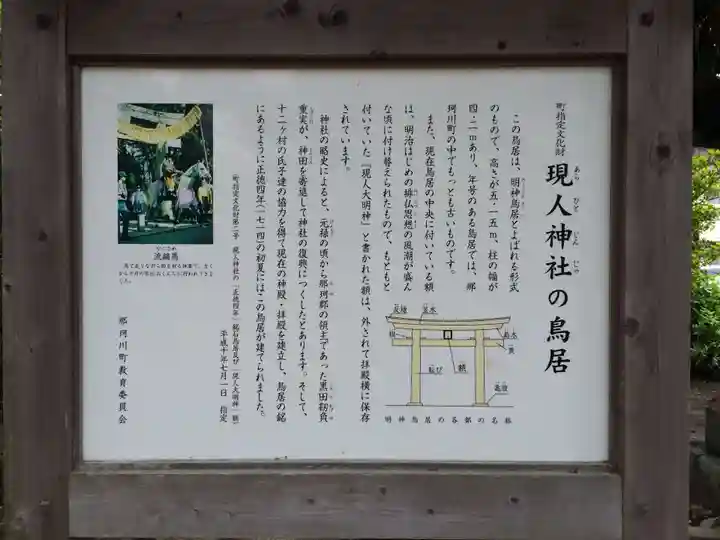 町指定文化財
現人神社の鳥居
あら ひと じん じゃ
この鳥居は、明神鳥居とよばれる形式
のもので、高さが五・一五m、柱の幅が
四・二mあり、年号のある鳥居では、那
珂川町の中でもっとも古いものです。
また、現在鳥居の中央に付いている額
は、明治はじめの排仏思想の風潮が盛ん
な頃に付け替えられたもので、もともと
付いていた『現人大明神』と書かれた額は、外されて拝殿横に保存
されています。
神社の略史によると、元禄の頃から那珂郡の領主であった黒田靱負
重実が、神田を寄進して神社の復興につくしたとあります。そして、
十二ヶ村の氏子達の協力を得て現在の神殿・拝殿を建立し、鳥居の銘
にあるように正徳四年(一七一四)の初夏にはこの鳥居が建てられました。
町指定文化財第二号 現人神社の「正徳四年」銘石鳥居及び「現人大明神」額
平成十年七月一日 指定
那珂川町教育委員会
やぶさめ
流鏑馬
反増
笠木
島木
貫
楔
額
転び
亀腹
明神鳥居の各部の名称